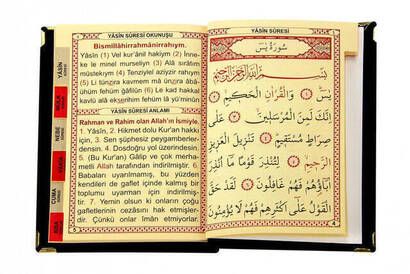 YÂSİN SÛRESİ OKUNUŞU
Bismillâhirrahmânirrahym.
Yâsîn (1) Vel kur'ânil hakiym (2) İnne-
ke le minel murseliyn (3) Alâ sırâtım
müstekıym (4) Tenziylel aziyzir rahıym
(5) Li tünzira kavmem mâ ünzira âbâ-
ühüm fehüm ğâfilûn (6) Le kad hakkal
kavlü alâ ekserihim fehüm lâ yü'minûn
YÂSİN SÛRESİ ANLAMI
Rahman ve Rahim olan Allah'ın İsmiyle.
1. Yâsîn, 2. Hikmet dolu Kur'an hakkı
için, 3. Sen şüphesiz peygamberler-
densin. 4. Dosdoğru yol üzerindesin.
5. (Bu Kur'an) Gâlip ve çok merha-
metli Allah tarafından indirilmiştir. 6.
Babaları uyarılmamış, bu yüzden
kendileri de gaflet içinde kalmış bir
toplumu uyarman için indirilmiş-
tir. 7. Yemin olsun ki onların çoğu
gafletlerinin cezasını hak etmişler-
dir. Çünkü onlar îman etmiyorlar.
5
YÂSİN
MÜLK
NEBE
VAKIA
CUMA
YÂSİN SÛRESİ
سُورَةُ يٰسٓ
بِسْمِ اللّٰهِ الرَّحْمٰنِ الرَّحِيمِ
يٰسٓ ﴿١﴾ وَالْقُرْاٰنِ الْحَكِيمِ ﴿٢﴾
اِنَّكَ لَمِنَ الْمُرْسَلِينَ ﴿٣﴾ عَلٰى
صِرَاطٍ مُسْتَقِيمٍ ﴿٤﴾ تَنْزِيلَ الْعَزِيزِ
الرَّحِيمِ ﴿٥﴾ لِتُنْذِرَ قَوْمًا مَا اُنْذِرَ
اٰبَاؤُهُمْ فَهُمْ غَافِلُونَ ﴿٦﴾ لَقَدْ حَقَّ
الْقَوْلُ عَلٰى اَكْثَرِهِمْ فَهُمْ لَا يُؤْمِنُونَ
4